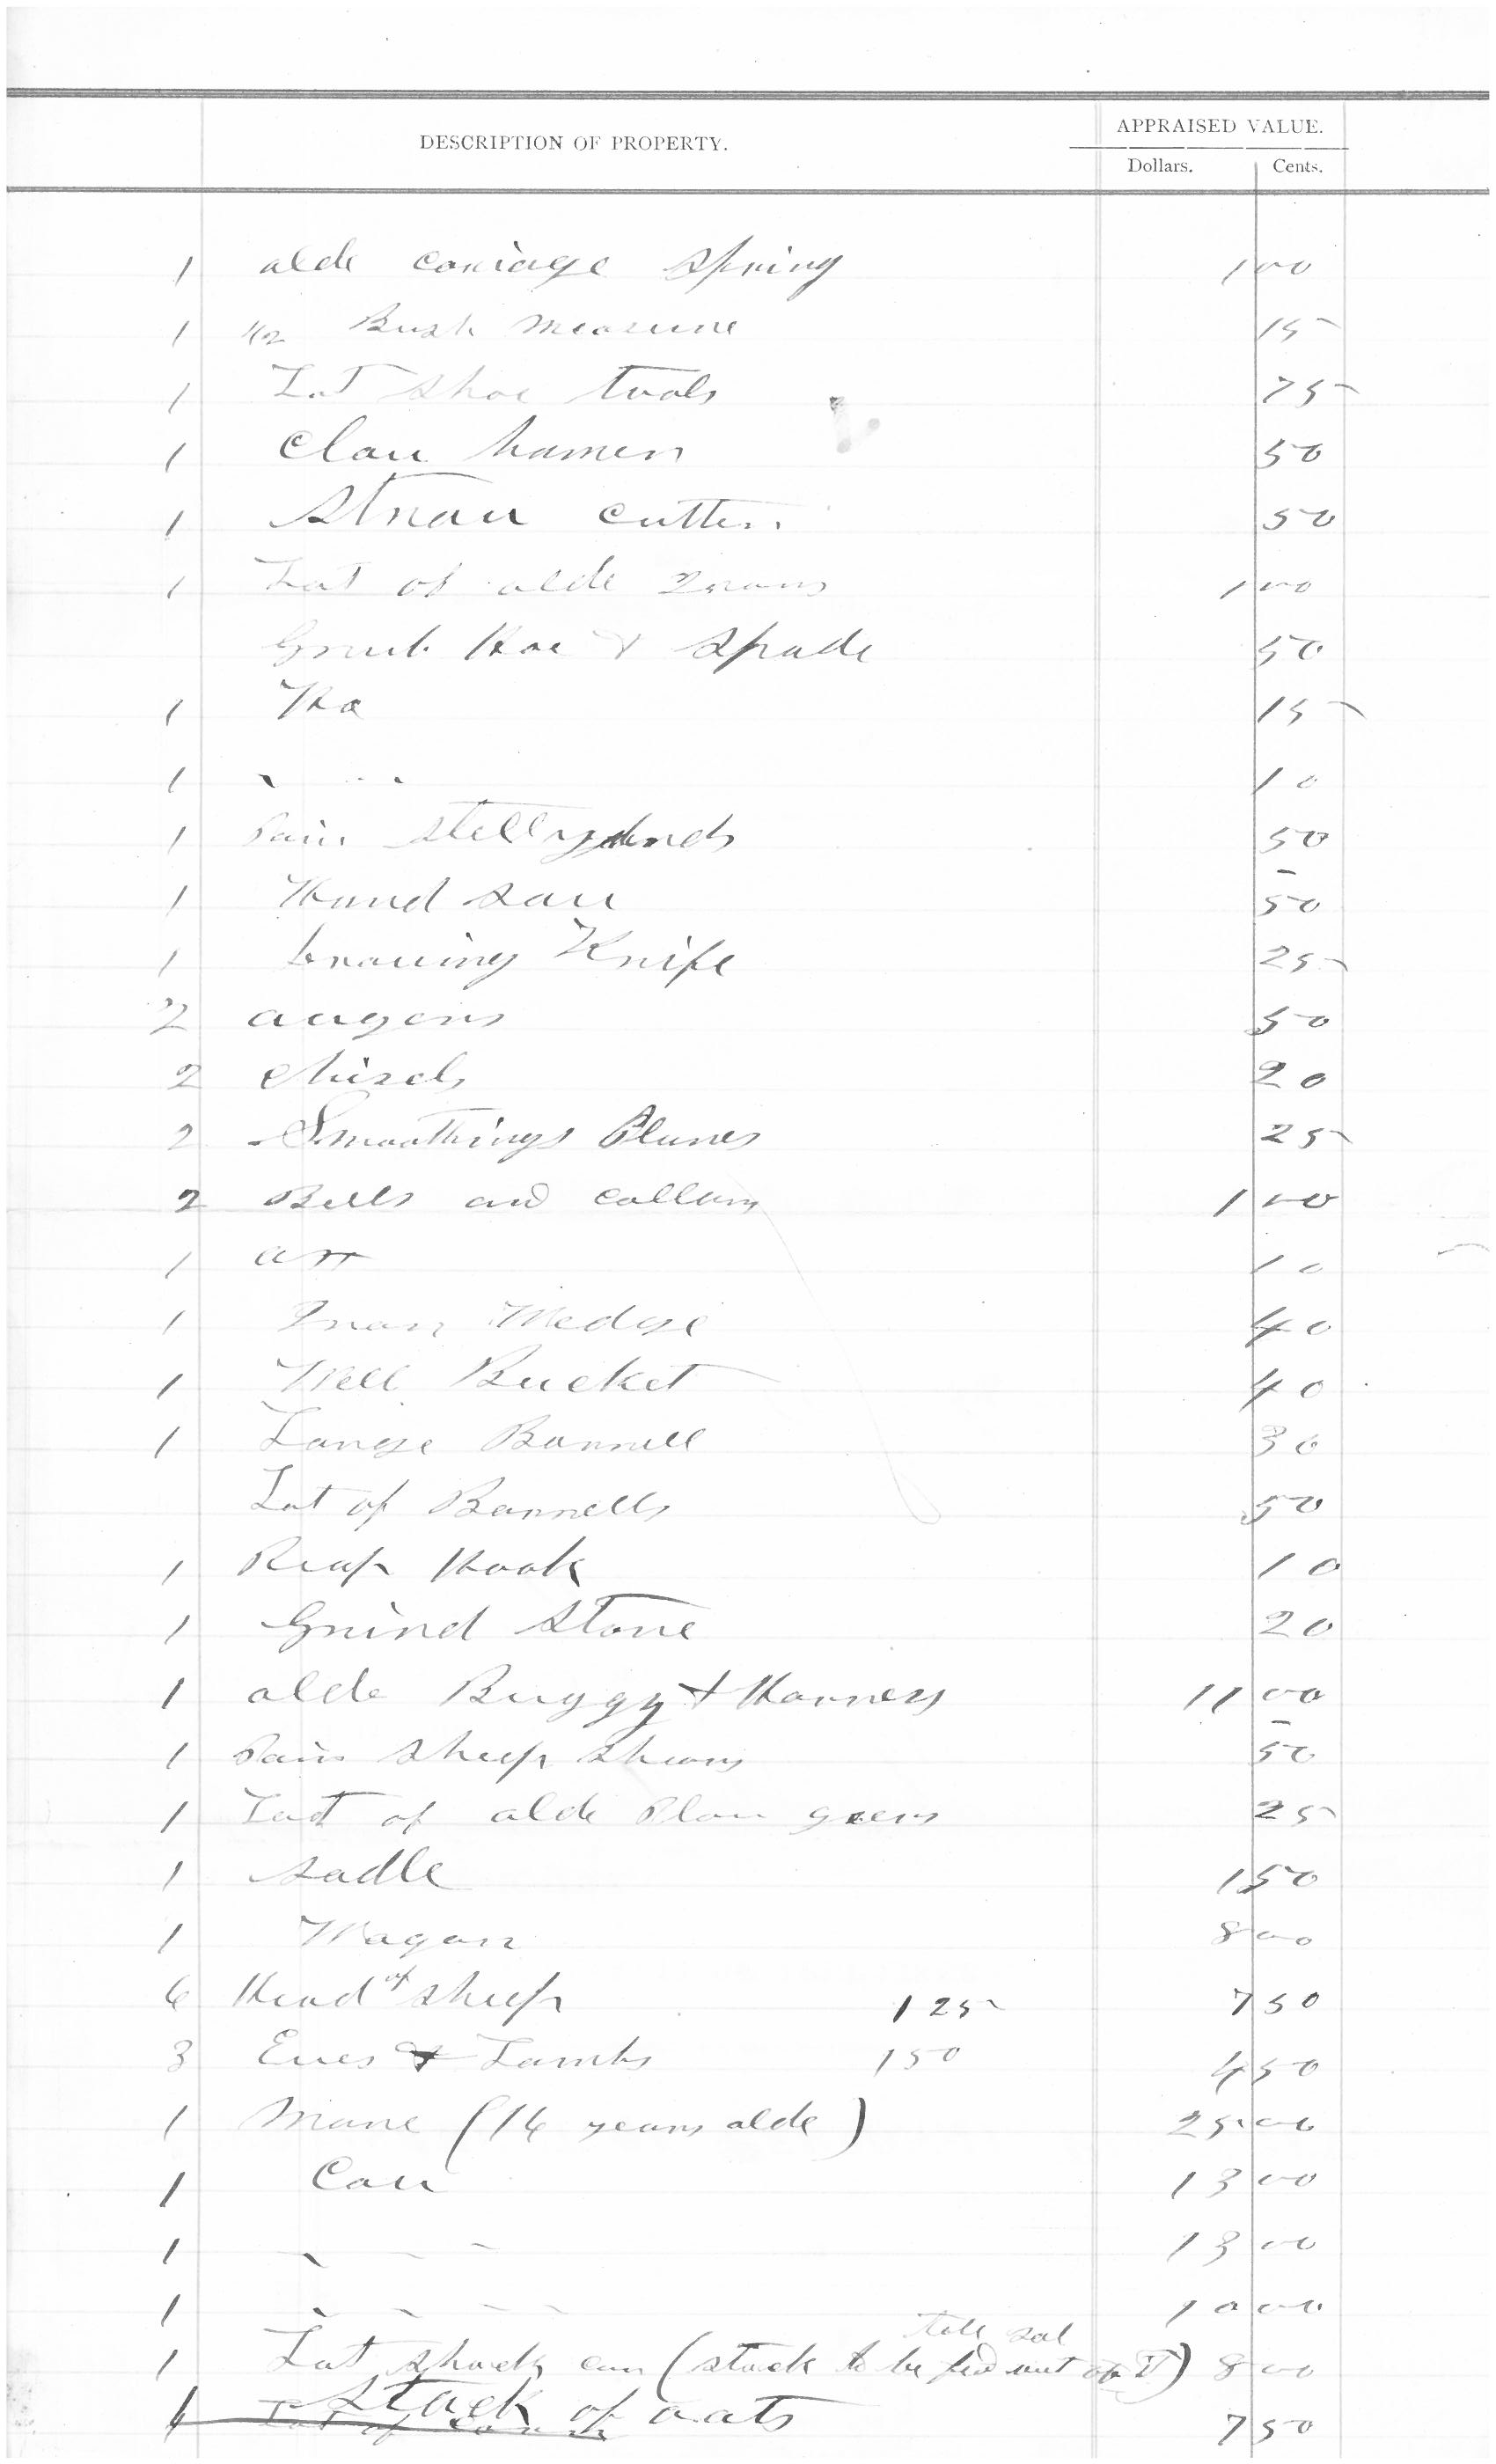 DESCRIPTION OF PROPERTY. APPRAISED VALUE.
Dollars. Cents.
1 alde cariage spring 1 00
1 1/2 Bush measure 15
1 Lot shoe tools 75
1 Claw hamer 50
1 Straw cutter 50
1 Lot of alde Irans 1 00
Grub Hoe & Spade 50
1 Ho 15
1 " " 10
1 Pair stellyards 50
1 Hand saw 50
1 Drawing Knife 25
2 augers 50
2 chisels 20
2 Smoothings Planes 25
2 Bells and collars 1 00
1 ax 10
1 Iran Wedge 40
1 Well Bucket 40
1 Large Barrell 30
Lot of Barrells 50
1 Reap Hook 10
1 Grind Stone 20
1 alde Buggy & Harness 11 00
1 Pair Sheep Shears 50
1 Lot of alde Plow geers 25
1 Sadle 1 50
1 Wagon 8 00
6 Head of Sheep 1 25 7 50
3 Ewes & Lambs 1 50 4 50
1 Mare (16 years alde) 25 00
1 Cow 13 00
1 " " " 13 00
1 " " " 10 00
till sal
1 Lot shock corn (stock to be fed out of it) 8 00
1 Stack of oats 7 50
Lot of